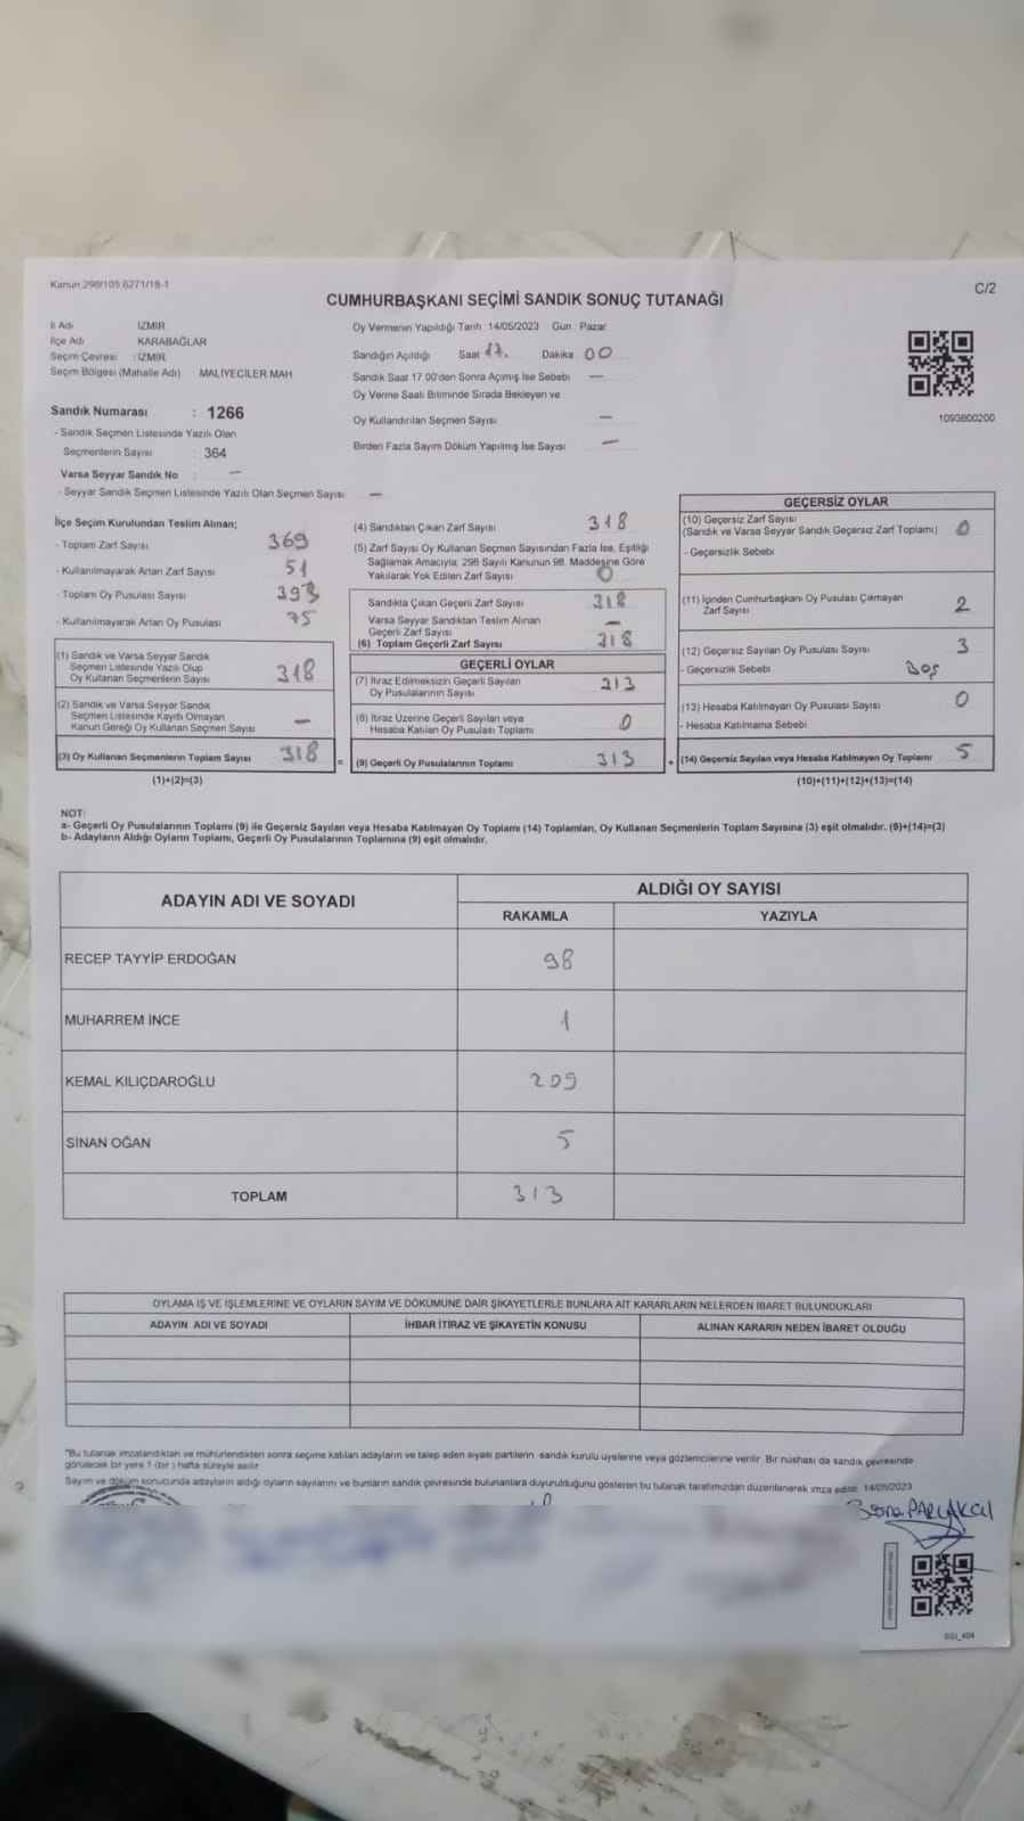 Kanun:298/105,6271/18-1
C/2
CUMHURBAŞKANI SEÇİMİ SANDIK SONUÇ TUTANAĞI
İl Adı İZMİR
İlçe Adı KARABAĞLAR
Seçim Çevresi : İZMİR
Seçim Bölgesi (Mahalle Adı) MALİYECİLER MAH
Sandık Numarası : 1266
- Sandık Seçmen Listesinde Yazılı Olan
Seçmenlerin Sayısı 364
Varsa Seyyar Sandık No : —
- Seyyar Sandık Seçmen Listesinde Yazılı Olan Seçmen Sayısı —
Oy Vermenin Yapıldığı Tarih: 14/05/2023 Gün: Pazar
Sandığın Açıldığı Saat 17. Dakika 00
Sandık Saat 17.00'den Sonra Açımış İse Sebebi —
Oy Verme Saati Bitiminde Sırada Bekleyen ve
Oy Kullandırılan Seçmen Sayısı —
Birden Fazla Sayım Döküm Yapılmış İse Sayısı —
1093800200
İlçe Seçim Kurulundan Teslim Alınan;
- Toplam Zarf Sayısı 369
- Kullanılmayarak Artan Zarf Sayısı 51
- Toplam Oy Pusulası Sayısı 393
- Kullanılmayarak Artan Oy Pusulası 75
(1) Sandık ve Varsa Seyyar Sandık
Seçmen Listesinde Yazılı Olup
Oy Kullanan Seçmenlerin Sayısı 318
(2) Sandık ve Varsa Seyyar Sandık
Seçmen Listesinde Kayıtlı Olmayan
Kanun Gereği Oy Kullanan Seçmen Sayısı —
(3) Oy Kullanan Seçmenlerin Toplam Sayısı 318
(1)+(2)=(3)
(4) Sandıktan Çıkan Zarf Sayısı 318
(5) Zarf Sayısı Oy Kullanan Seçmen Sayısından Fazla İse, Eşitliği
Sağlamak Amacıyla; 298 Sayılı Kanunun 98. Maddesine Göre
Yakılarak Yok Edilen Zarf Sayısı 0
Sandıkta Çıkan Geçerli Zarf Sayısı 318
Varsa Seyyar Sandıktan Teslim Alınan
Geçerli Zarf Sayısı —
(6) Toplam Geçerli Zarf Sayısı 318
GEÇERLİ OYLAR
(7) İtiraz Edilmeksizin Geçerli Sayılan
Oy Pusulalarının Sayısı 313
(8) İtiraz Üzerine Geçerli Sayılan veya
Hesaba Katılan Oy Pusulası Toplamı 0
= (9) Geçerli Oy Pusulalarının Toplamı 313
GEÇERSİZ OYLAR
(10) Geçersiz Zarf Sayısı
(Sandık ve Varsa Seyyar Sandık Geçersiz Zarf Toplamı) 0
- Geçersizlik Sebebi
(11) İçinden Cumhurbaşkanı Oy Pusulası Çıkmayan
Zarf Sayısı 2
(12) Geçersiz Sayılan Oy Pusulası Sayısı 3
- Geçersizlik Sebebi Boş
(13) Hesaba Katılmayan Oy Pusulası Sayısı 0
- Hesaba Katılmama Sebebi
+ (14) Geçersiz Sayılan veya Hesaba Katılmayan Oy Toplamı 5
(10)+(11)+(12)+(13)=(14)
NOT:
a- Geçerli Oy Pusulalarının Toplamı (9) ile Geçersiz Sayılan veya Hesaba Katılmayan Oy Toplamı (14) Toplamları, Oy Kullanan Seçmenlerin Toplam Sayısına (3) eşit olmalıdır. (9)+(14)=(3)
b- Adayların Aldığı Oyların Toplamı, Geçerli Oy Pusulalarının Toplamına (9) eşit olmalıdır.
ADAYIN ADI VE SOYADI
ALDIĞI OY SAYISI
RAKAMLA YAZIYLA
RECEP TAYYİP ERDOĞAN 98
MUHARREM İNCE 1
KEMAL KILIÇDAROĞLU 209
SİNAN OĞAN 5
TOPLAM 313
OYLAMA İŞ VE İŞLEMLERİNE VE OYLARIN SAYIM VE DÖKÜMÜNE DAİR ŞİKAYETLERLE BUNLARA AİT KARARLARIN NELERDEN İBARET BULUNDUKLARI
ADAYIN ADI VE SOYADI İHBAR İTİRAZ VE ŞİKAYETİN KONUSU ALINAN KARARIN NEDEN İBARET OLDUĞU
"Bu tutanak imzalandıktan ve mühürlendikten sonra seçime katılan adayların ve talep eden siyasi partilerin sandık kurulu üyelerine veya gözlemcilerine verilir. Bir nüshası da sandık çevresinde
görülecek bir yere 1 (bir) hafta süreyle asılır.
Sayım ve döküm sonucunda adayların aldığı oyların sayılarını ve bunların sandık çevresinde bulunanlara duyurulduğunu gösteren bu tutanak tarafımızdan düzenlenerek imza edildi. 14/05/2023